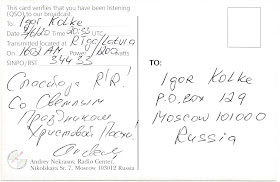 This card verifies that you have been listening
(QSO) to our broadcast.
To: Igor Kolke
Date Time 20:33 UTC
Transmitted located at Riga/Latvia
On 1681 AM Power
SINPO/RST 34433
Спасибо R/R!
Со Светлым
Праздником
Христовой Пасхи!
Andrey
Andrey Nekrasov, Radio Center,
Nikolskaya St. 7, Moscow 103012 Russia
TO:
Igor Kolke
P.O.BOX 129
Moscow 101000
Russia